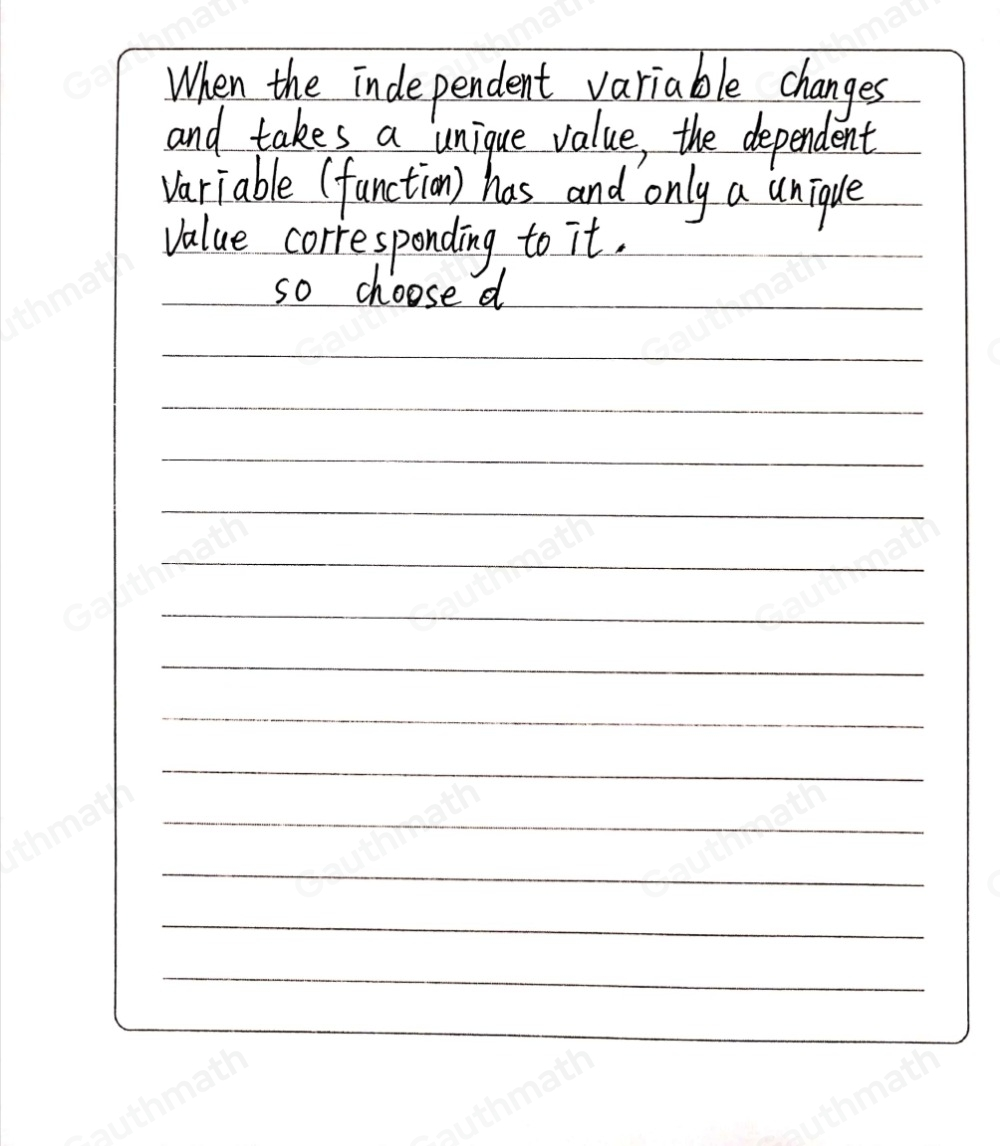 When the independent variable changes
and takes a unique value, the dependent
variable (function) has and only a unique
value corresponding to it.
so choose d
Gauthmath